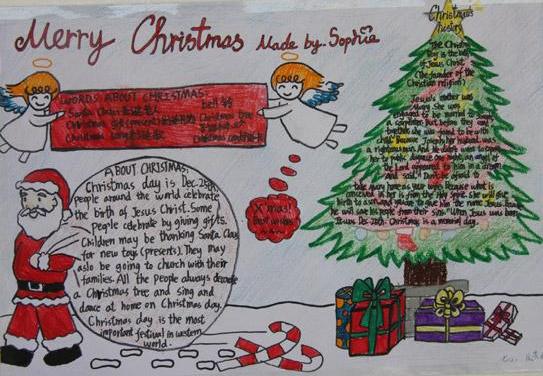 Merry Christmas Made by. Sophia
WORDS ABOUT CHRISTMAS:
Santa Claus 圣诞老人 bell 铃
Christmas Christmas tree
Christmas Song Christmas
ABOUT CHRISTMAS:
Christmas day is Dec. 25th.
people around the world celebrate
the birth of Jesus Christ. Some
People celebrate by giving gifts.
Children may be thanking Santa Claus
for new toys (presents). They may
aslo be going to church with their
families. All the people always decorate
a Christmas tree and sing and
dance at home on Christmas day.
Christmas day is the most
important festival in western
world.
X'mas!
best wishes
Christmas's
history
The Christmas
day is the
of Jesus Christ
(the founder of the
Christian religion)
Jesus's mother was
She was
engaged to be married to
a carpenter. But before they came
together she was found to be with
child. Because Joseph her husband
righteous and he didn't want
her to public
and said: "Don't be afraid to
take Mary home as your wife. Because what is
conceived in her is from the holy spirit. She will give
birth to a son and you are to give him the name Jesus. Because
he will save his people from their sins." When Jesus was born
It was Dec. 25th. Christmas is a memorial day.